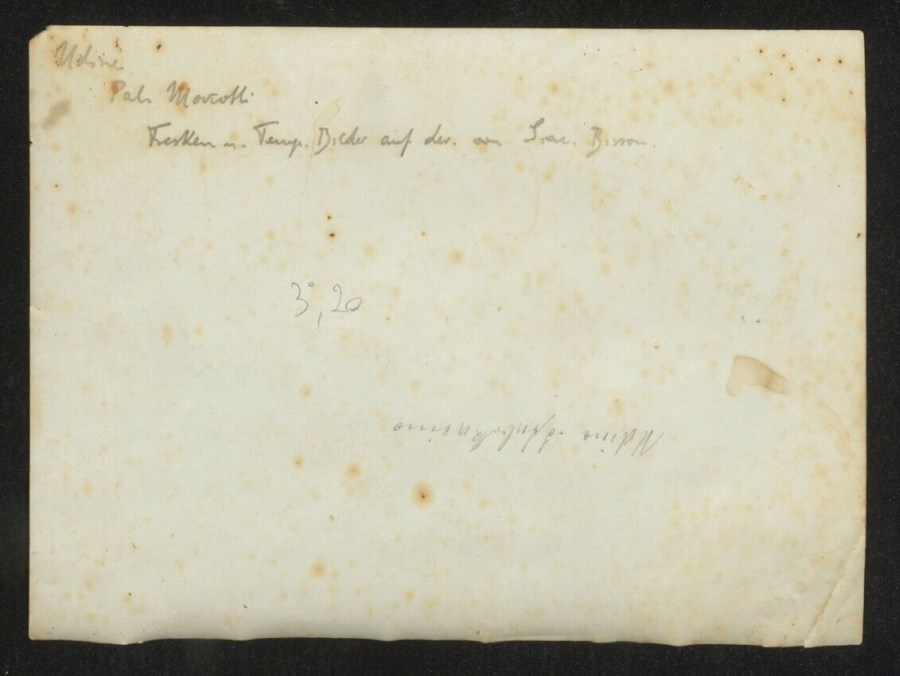 Udine
Pal. Marcotti
Fresken u. Temp. Bilder auf der. von Bisson.
3,20
Udine